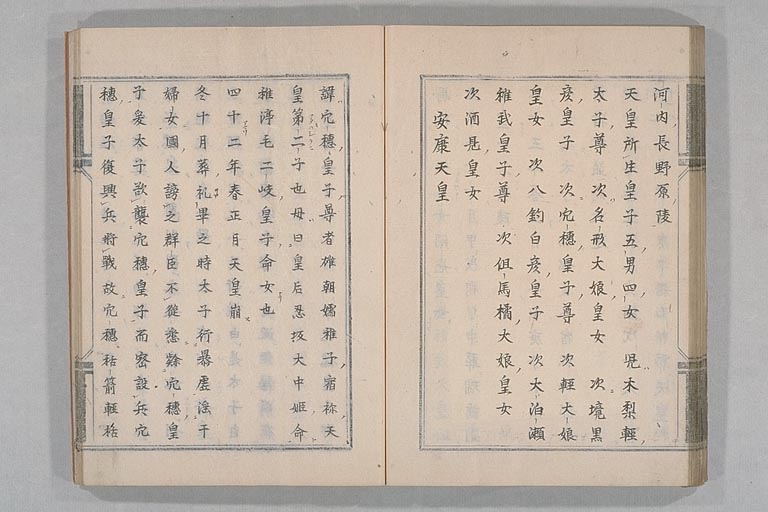 河内長野原陵
天皇所生皇子五男四女児木梨軽
太子尊次名形大娘皇女次境黒
彦皇子次穴穂皇子尊次軽大娘
皇女次八釣白彦皇子次大泊瀬
稚武皇子尊次但馬橘大娘皇女
次酒見皇女
安康天皇
諱穴穂皇子尊者雄朝嬬稚子宿祢天
皇第二子也母曰皇后忍坂大中姫命
稚渟毛二岐皇子命女也
四十二年春正月天皇崩
冬十月葬礼畢之時太子行暴虐淫于
婦女国人謗之群臣不従悉隷穴穂皇
子爰太子欲襲穴穂皇子而密設兵穴
穂皇子復興兵将戦故穴穂括箭軽括